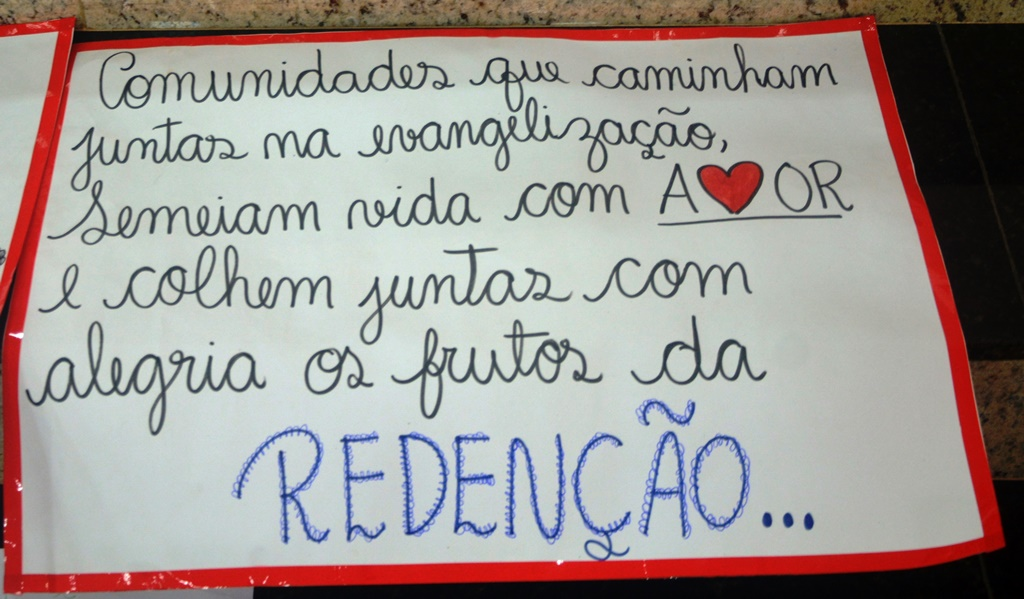 Comunidades que caminham
juntas na evangelização,
Semeiam vida com A❤OR
e colhem juntas com
alegria os frutos da
REDENÇÃO...